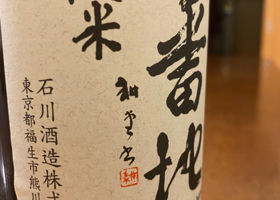 番地
純米
石川酒造株式
東京都福生市熊川